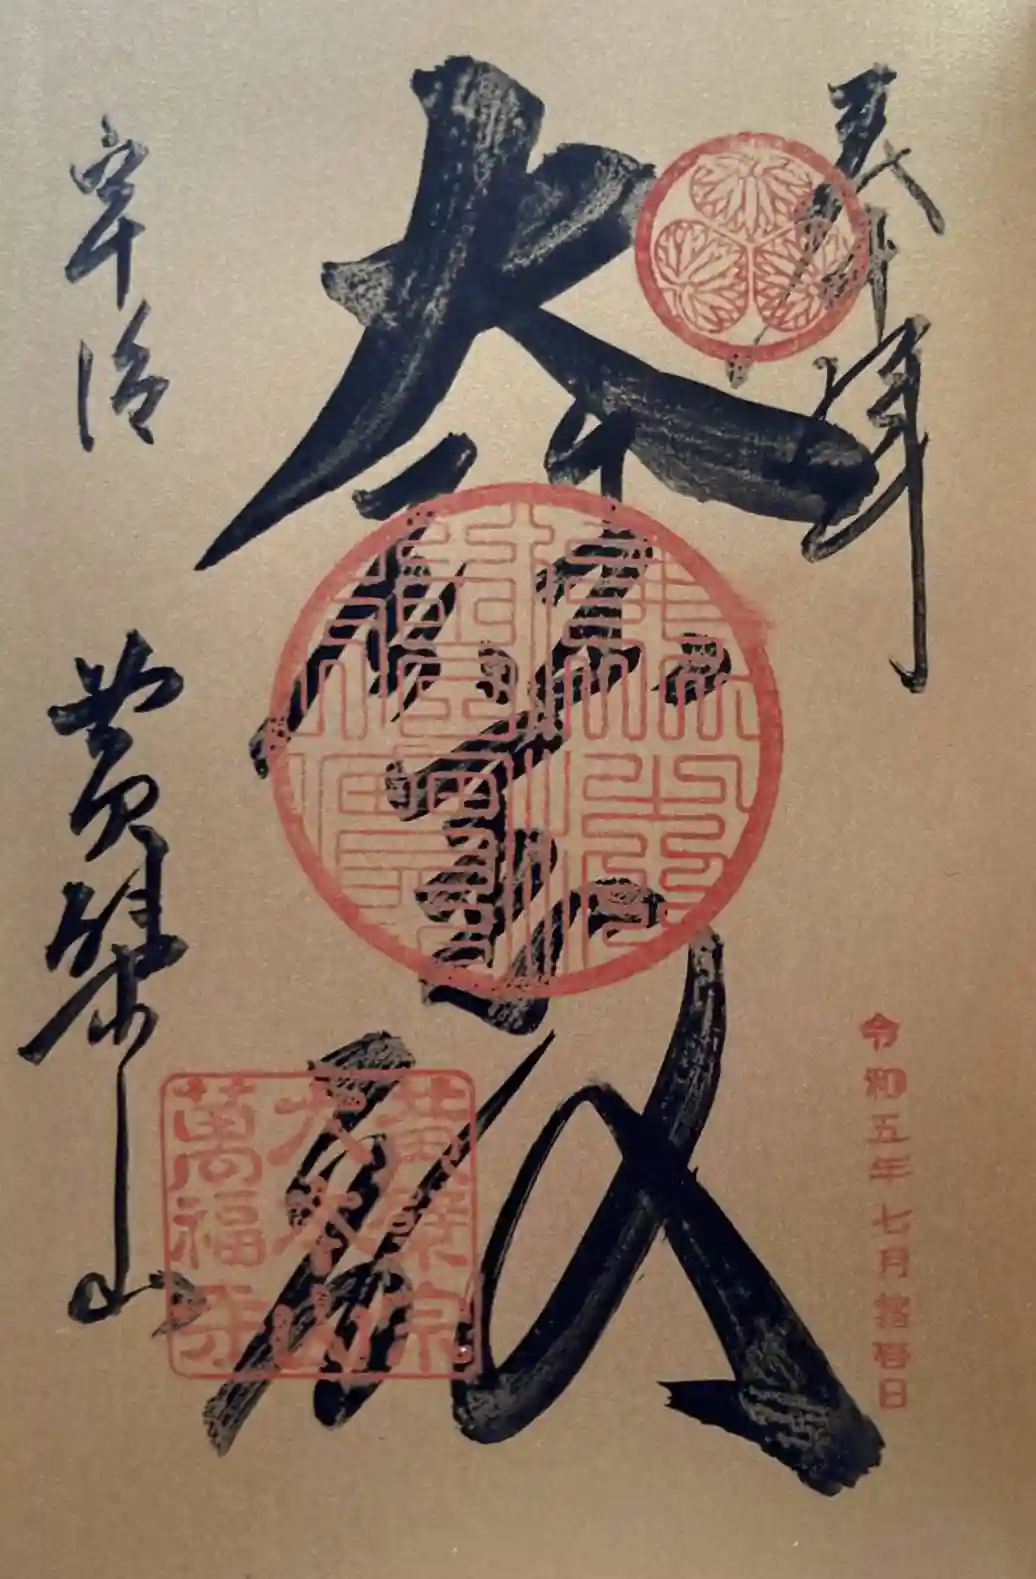 奉拝
令和五年七月拾日
大雄宝殿
宇治 黄檗山
黄檗宗
大本山
萬福寺